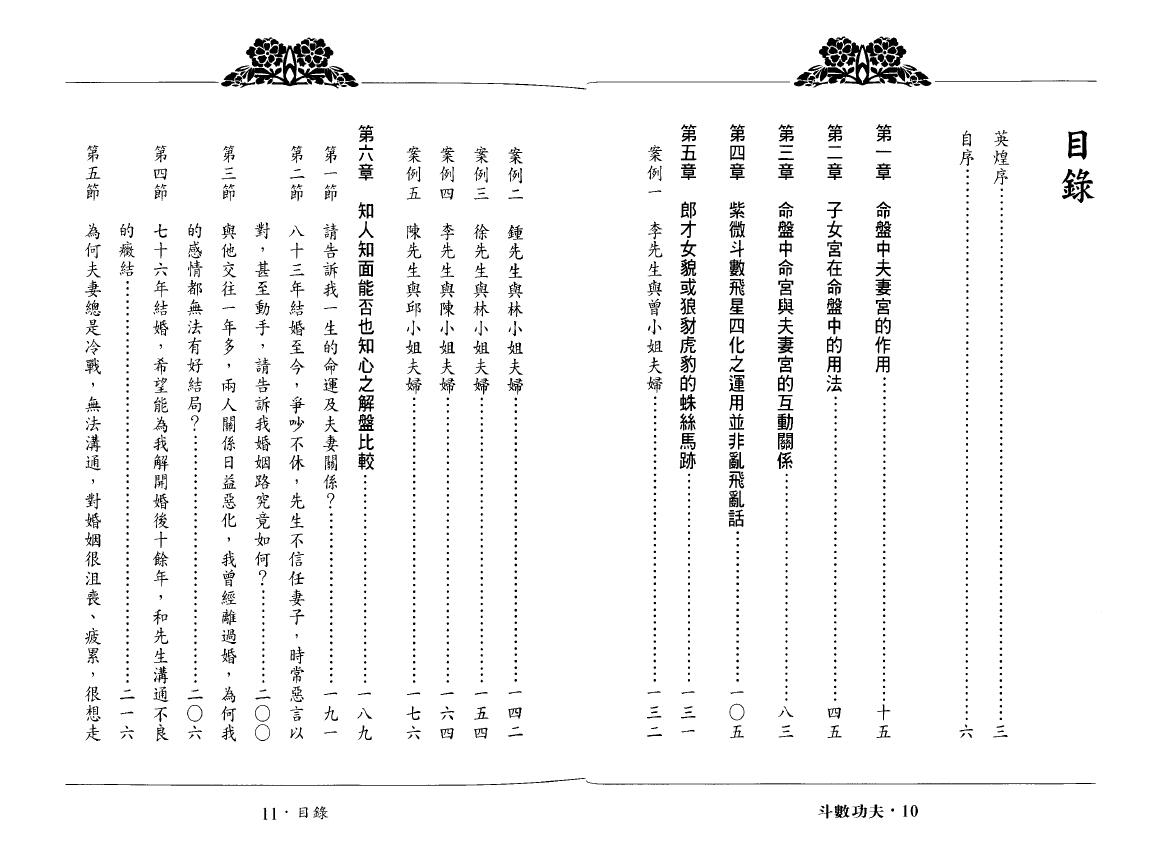 目錄
英煌序⋯⋯⋯⋯三
自序⋯⋯⋯⋯六
第一章　命盤中夫妻宮的作用⋯⋯⋯⋯十五
第二章　子女宮在命盤中的用法⋯⋯⋯⋯四五
第三章　命盤中命宮與夫妻宮的互動關係⋯⋯⋯⋯八三
第四章　紫微斗數飛星四化之運用並非亂飛亂話⋯⋯⋯⋯一〇五
第五章　郎才女貌或狼豺虎豹的蛛絲馬跡⋯⋯⋯⋯一三一
案例一　李先生與曾小姐夫婦⋯⋯⋯⋯一三二
斗數功夫・10
案例二　鍾先生與林小姐夫婦⋯⋯⋯⋯一四二
案例三　徐先生與林小姐夫婦⋯⋯⋯⋯一五四
案例四　李先生與陳小姐夫婦⋯⋯⋯⋯一六四
案例五　陳先生與邱小姐夫婦⋯⋯⋯⋯一七六
第六章　知人知面能否也知心之解盤比較⋯⋯⋯⋯一八九
第一節　請告訴我一生的命運及夫妻關係？⋯⋯⋯⋯一九一
第二節　八十三年結婚至今，爭吵不休，先生不信任妻子，時常惡言以
對，甚至動手，請告訴我婚姻路究竟如何？⋯⋯⋯⋯二〇〇
第三節　與他交往一年多，兩人關係日益惡化，我曾經離過婚，為何我
的感情都無法有好結局？⋯⋯⋯⋯二〇六
第四節　七十六年結婚，希望能為我解開婚後十餘年，和先生溝通不良
的癥結⋯⋯⋯⋯二一六
第五節　為何夫妻總是冷戰，無法溝通，對婚姻很沮喪、疲累，很想走
11・目錄